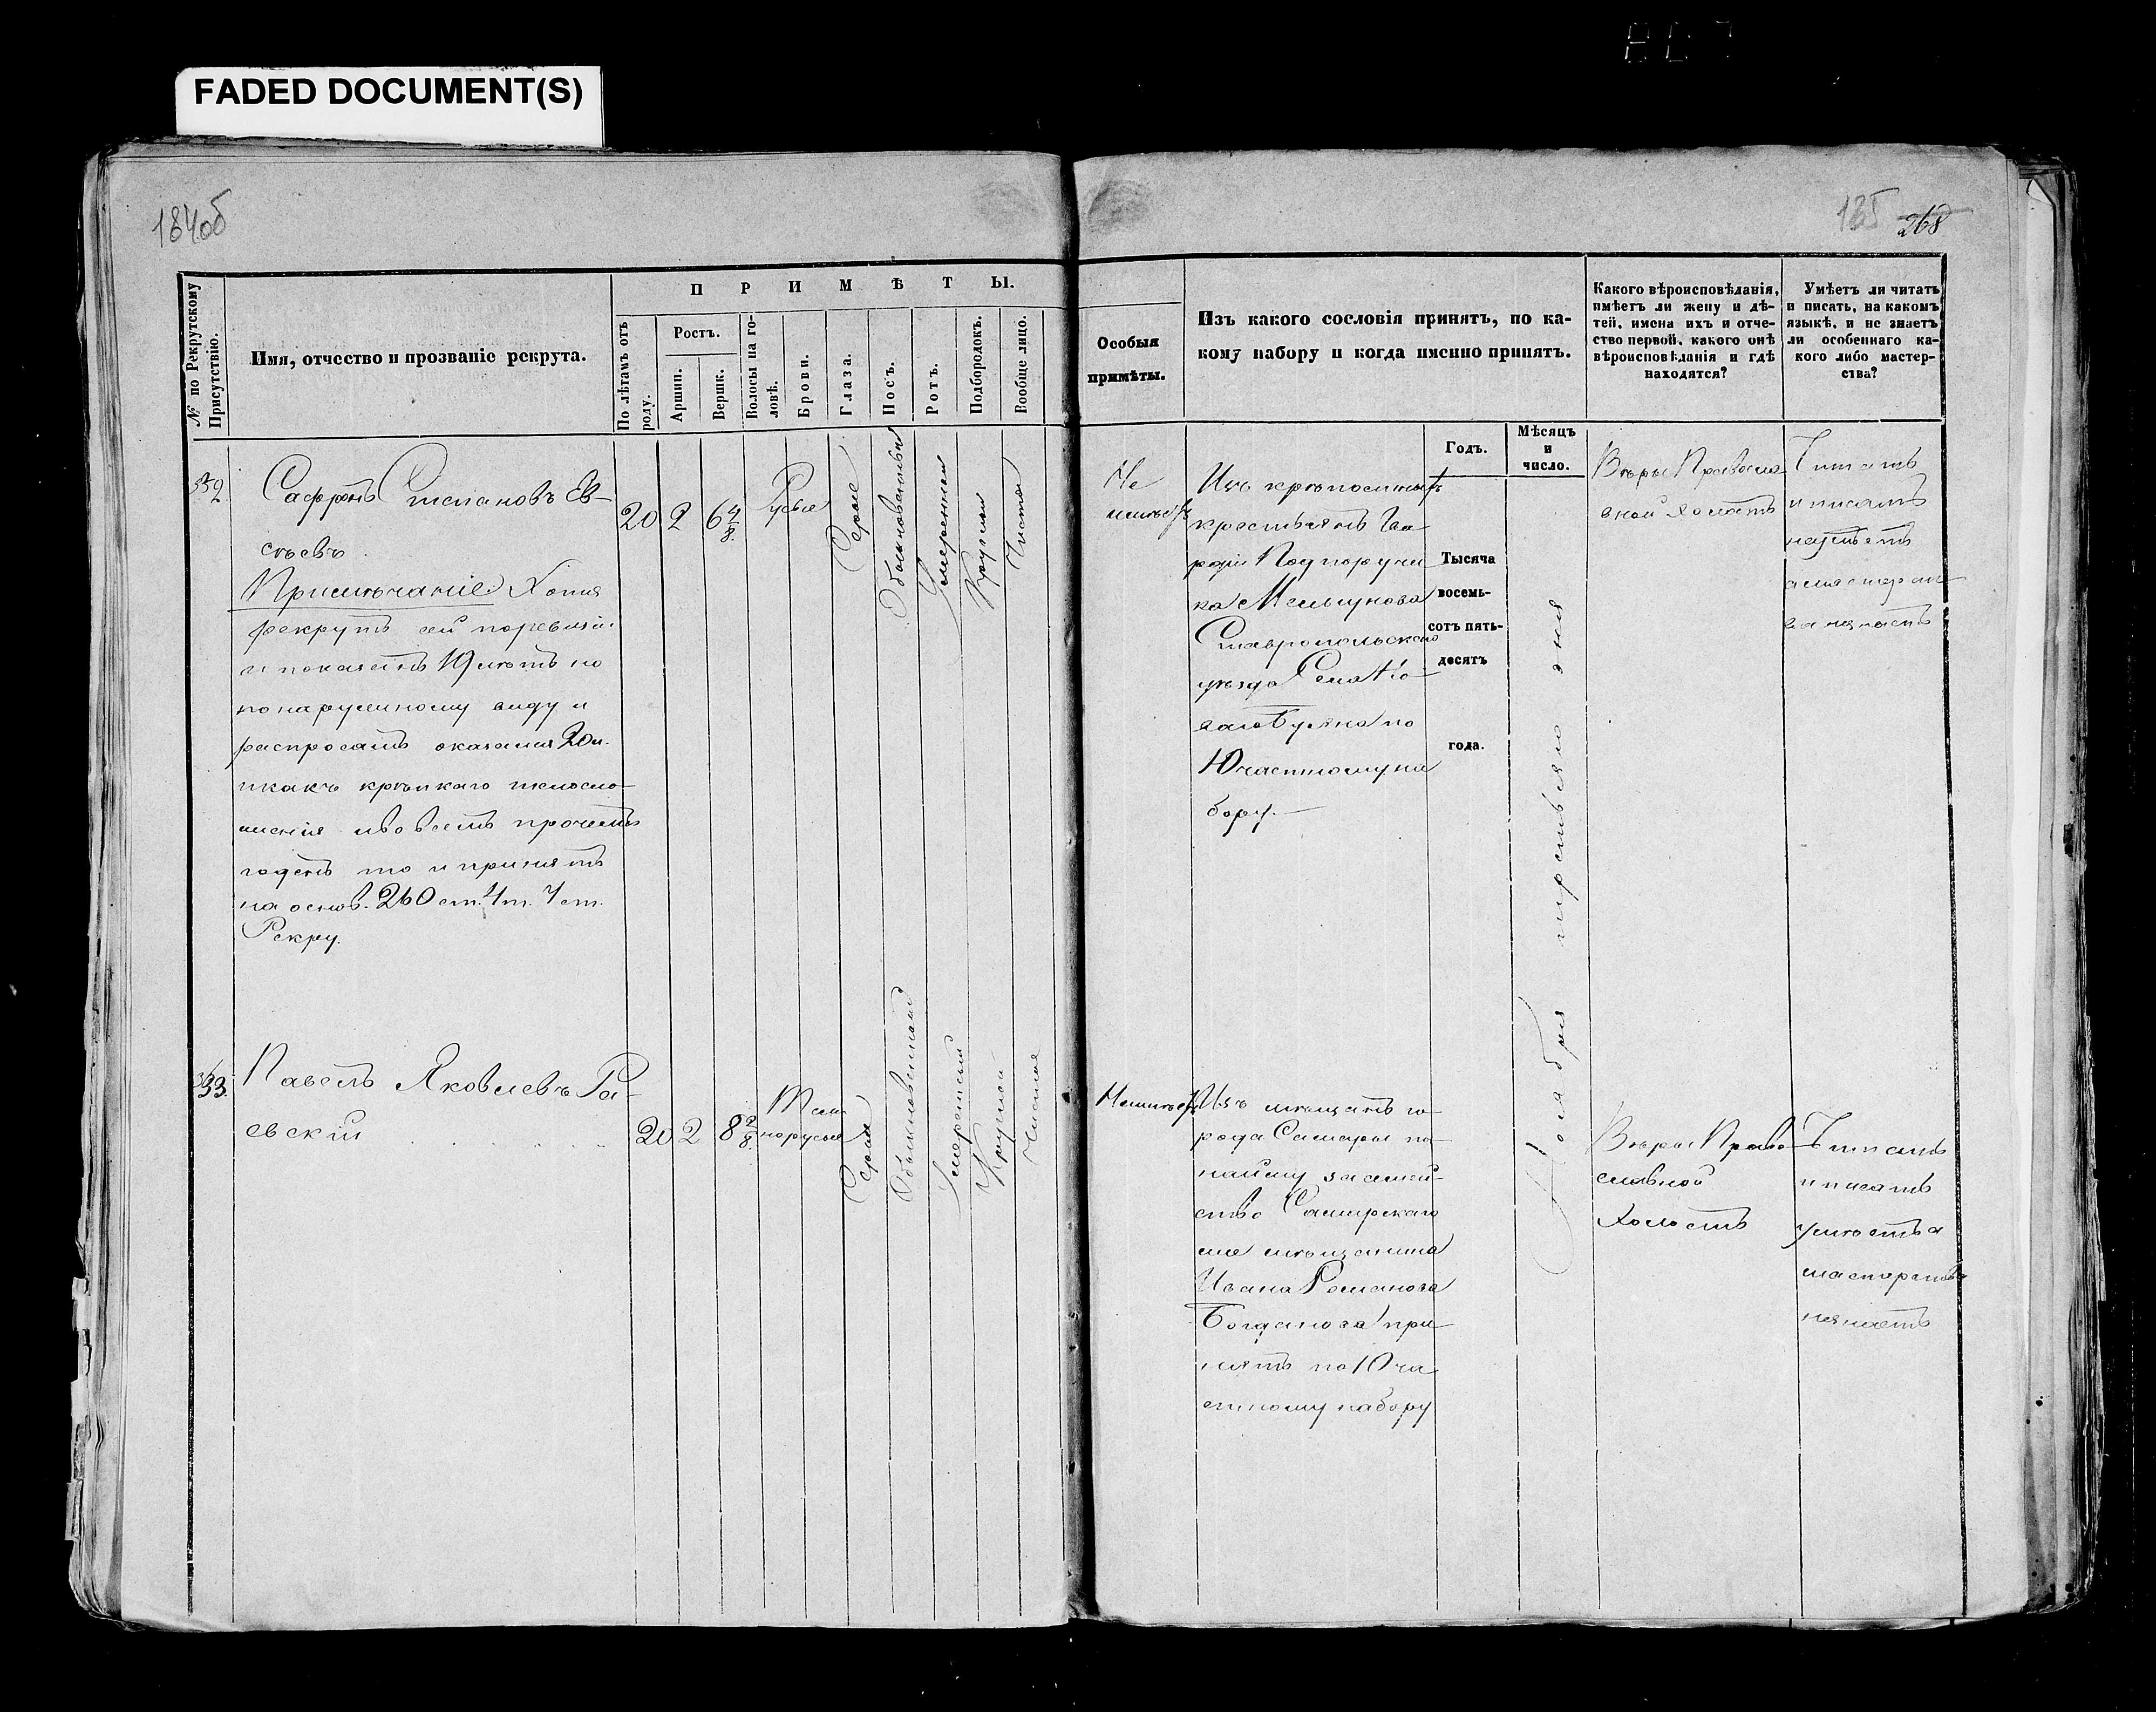 FADED DOCUMENT(S)
184об
185
268
№ по Рекрутскому Присутствію.
Имя, отчество и прозваніе рекрута.
П Р И М Ѣ Т Ы.
По лѣтамъ отъ роду.
Ростъ.
Аршин.
Вершк.
Волосы на головѣ.
Брови.
Глаза.
Носъ.
Ротъ.
Подбородокъ.
Вообще лицо.
Особыя
примѣты.
Изъ какого сословія принятъ, по ка-
кому набору и когда именно принятъ.
Какого вѣроисповѣданія,
имѣетъ ли жену и дѣ-
тей, имена ихъ и отче-
ство первой, какого онѣ
вѣроисповѣданія и гдѣ
находятся?
Умѣетъ ли читать
и писать, на какомъ
языкѣ, и не знаетъ
ли особеннаго ка-
кого либо мастер-
ства?
Годъ.
Мѣсяцъ
и
число.
Сафронъ Степановъ Ев-
сѣевъ.
Примѣчаніе Хотя
рекрутъ сей поревизіи
и показанъ 19 лѣтъ но
по наружному виду и
распросамъ оказался 20 л.
икакъ крѣпкаго тѣлосло-
женія ивовсемъ прочемъ
годенъ то и принятъ
на основ. 260 ст. 4 т.
Рекру.
20
2
6 4/8
Русые
Серые
Обыкновенный
Умеренный
Круглый
Чистое
Не
имѣетъ
Изъ крѣпостныхъ
крестьянъ Гва-
рдіи Подпоручи
ка Мельгунова
Ставропольскаго
уѣзда Села Но-
ваго Буяна по
10 частному на
бору.
Тысяча
восемь-
сотъ пять-
десятъ
года.
Ноября третьяго дня
Вѣры Правосла-
вной Холостъ
Читать
и писать
неумѣетъ
а мастерст
ва незнаетъ
333.
Павелъ Яковлевъ Ра-
евскій
20
2
8 2/8
Тем-
норусые
Серые
Обыкновенный
Умеренный
Круглой
Чистое
Неимѣетъ
Изъ мѣщанъ го-
рода Самары по
найму за семей-
ство Самарскаго
же мѣщанина
Ивана Романова
Богданова при-
нятъ по 10 ча
стному набору
Вѣры Право-
славной
Холостъ
Читать
и писать
умѣетъ а
мастерства
незнаетъ